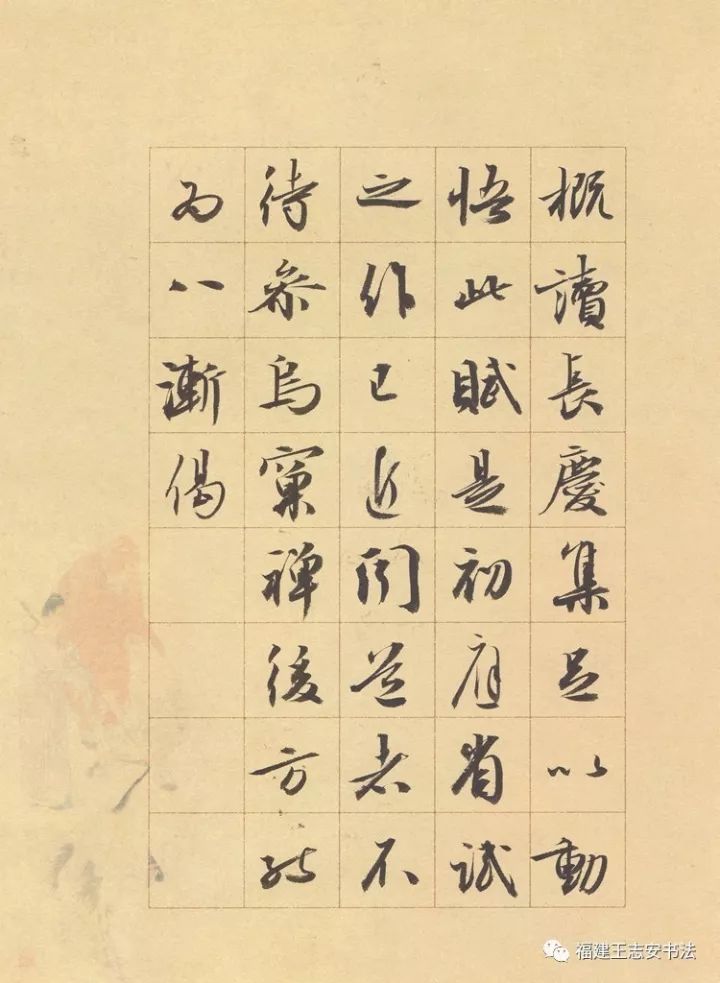 概讀長慶集足以動
悟此賦是初應省試
之作已近聞道者不
待參鳥窠禪後方能
為八漸偈
福建王志安书法